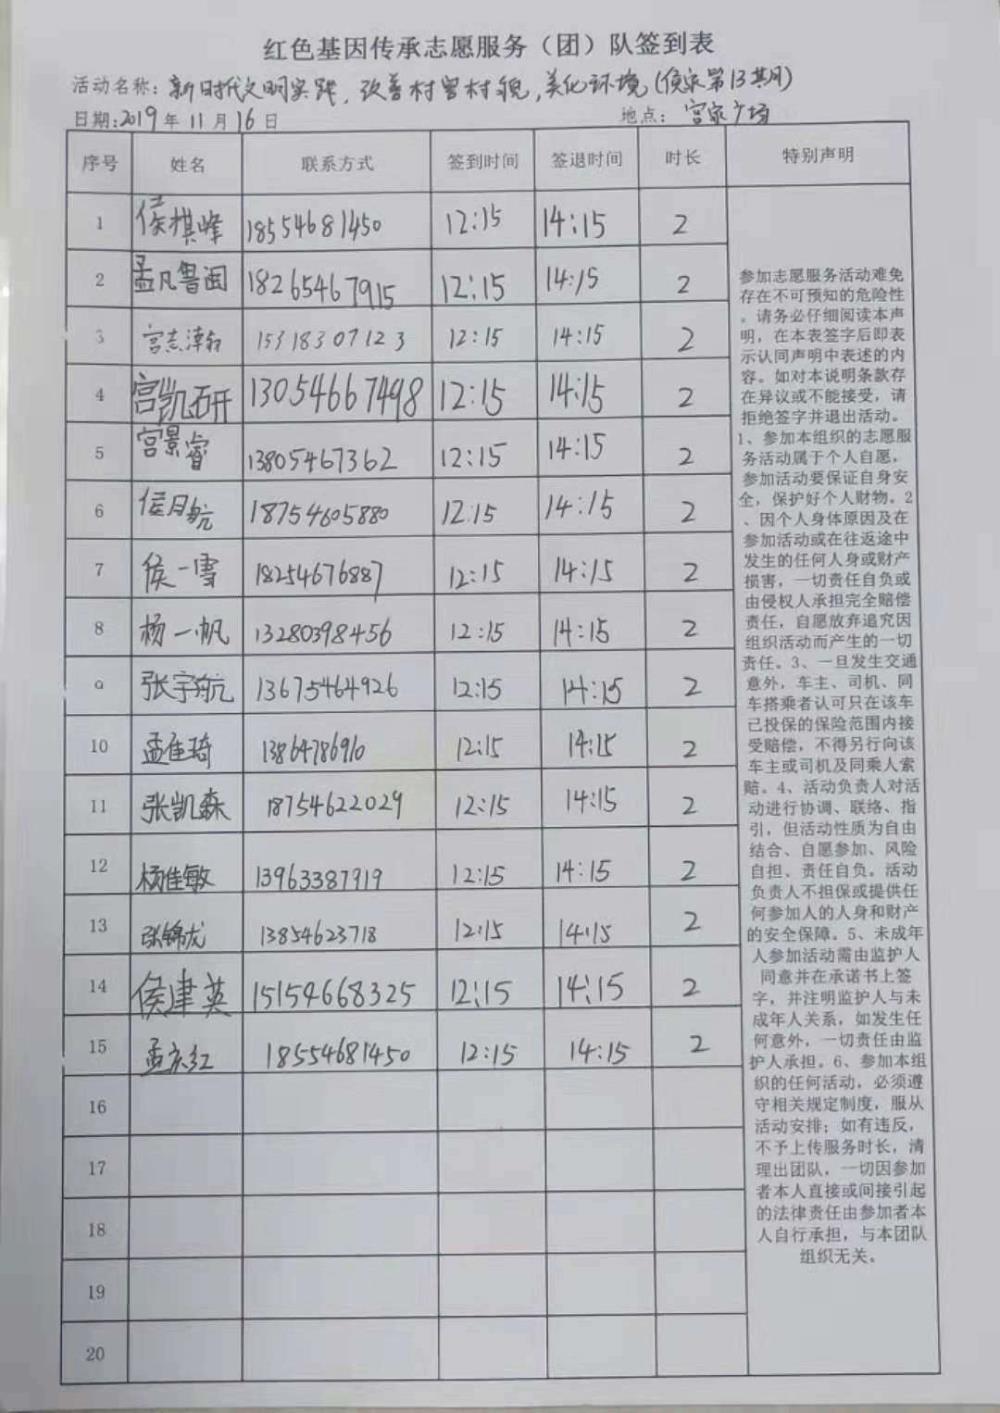 红色基因传承志愿服务（团）队签到表
活动名称：新时代文明实践，改善村容村貌，美化环境（侯家第13期）
日期：2019年11月16日 地点：宫家广场
序号 姓名 联系方式 签到时间 签退时间 时长 特别声明
1 侯棋峰 18554681450 12:15 14:15 2
2 孟凡鲁闽 18265467915 12:15 14:15 2
3 宫志 15318307123 12:15 14:15 2
4 宫凯 13054667498 12:15 14:15 2
5 宫景睿 13805467362 12:15 14:15 2
6 侯月航 18754605880 12:15 14:15 2
7 侯一雪 18254676887 12:15 14:15 2
8 杨一帆 13280398456 12:15 14:15 2
9 张宇航 13675464926 12:15 14:15 2
10 孟佳琦 13864786910 12:15 14:15 2
11 张凯森 18754622029 12:15 14:15 2
12 杨佳敏 13963387919 12:15 14:15 2
13 张锦龙 13854623718 12:15 14:15 2
14 侯聿英 15154668325 12:15 14:15 2
15 孟庆红 18554681450 12:15 14:15 2
16
17
18
19
20
参加志愿服务活动难免
存在不可预知的危险性
。请务必仔细阅读本声
明，在本表签字后即表
示认同声明中表述的内
容。如对本说明条款存
在异议或不能接受，请
拒绝签字并退出活动。
1、参加本组织的志愿服
务活动属于个人自愿，
参加活动要保证自身安
全，保护好个人财物。2
、因个人身体原因及在
参加活动或在往返途中
发生的任何人身或财产
损害，一切责任自负或
由侵权人承担完全赔偿
责任，自愿放弃追究因
组织活动而产生的一切
责任。3、一旦发生交通
意外，车主、司机、同
车搭乘者认可只在该车
已投保的保险范围内接
受赔偿，不得另行向该
车主或司机及同乘人索
赔。4、活动负责人对活
动进行协调、联络、指
引，但活动性质为自由
结合、自愿参加、风险
自担、责任自负。活动
负责人不担保或提供任
何参加人的人身和财产
的安全保障。5、未成年
人参加活动需由监护人
同意并在承诺书上签
字，并注明监护人与未
成年人关系，如发生任
何意外，一切责任由监
护人承担。6、参加本组
织的任何活动，必须遵
守相关规定制度，服从
活动安排；如有违反，
不予上传服务时长，清
理出团队，一切因参加
者本人直接或间接引起
的法律责任由参加者本
人自行承担，与本团队
组织无关。